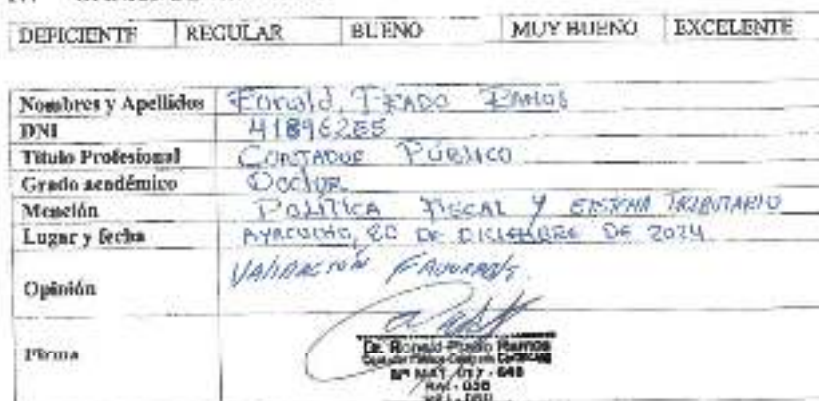 DEFICIENTE REGULAR BUENO MUY BUENO EXCELENTE
Nombres y Apellidos Ronald, PRADO RAMOS
DNI 41896285
Título Profesional CONTADOR PÚBLICO
Grado académico Doctor
Mención POLITICA FISCAL Y SISTEMA TRIBUTARIO
Lugar y fecha AYACUCHO, 20 DE DICIEMBRE DE 2024
Opinión VALIDACION FAVORABLE.
Firma
Dr. Ronald Prado Ramos
Nº MAT. 017 - 648